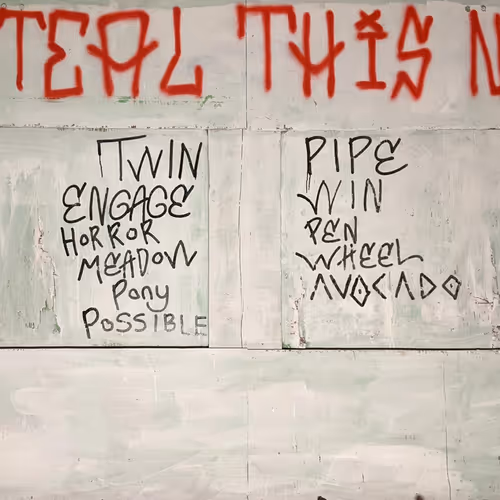 TEAL THIS N
TWIN
ENGAGE
HORROR
MEADOW
Pony
POSSIBLE
PIPE
WIN
PEN
WHEEL
AVOCADO